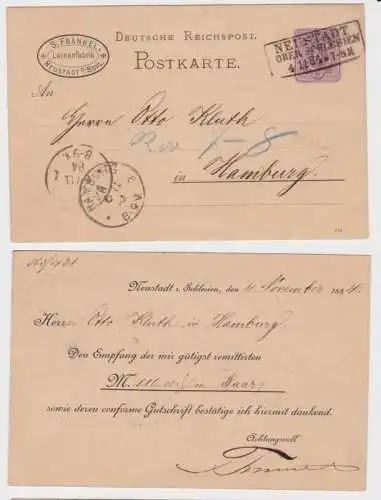 S. FRÄNKEL
Leinenfabrik
NEUSTADT
DEUTSCHE REICHSPOST.
POSTKARTE.
NEUSTADT
OBER SCHLESIEN
4 11 84 * 7-8 N
An
Herrn Otto Kluth
7-8
in Hamburg.
HAMBURG
Neustadt i. Schlesien, den 4. November 1884.
Herrn Otto Kluth in Hamburg
Den Empfang der mir gütigst remittirten
M.
sowie deren conforme Gutschrift bestätige ich hiermit dankend.
Achtungsvoll